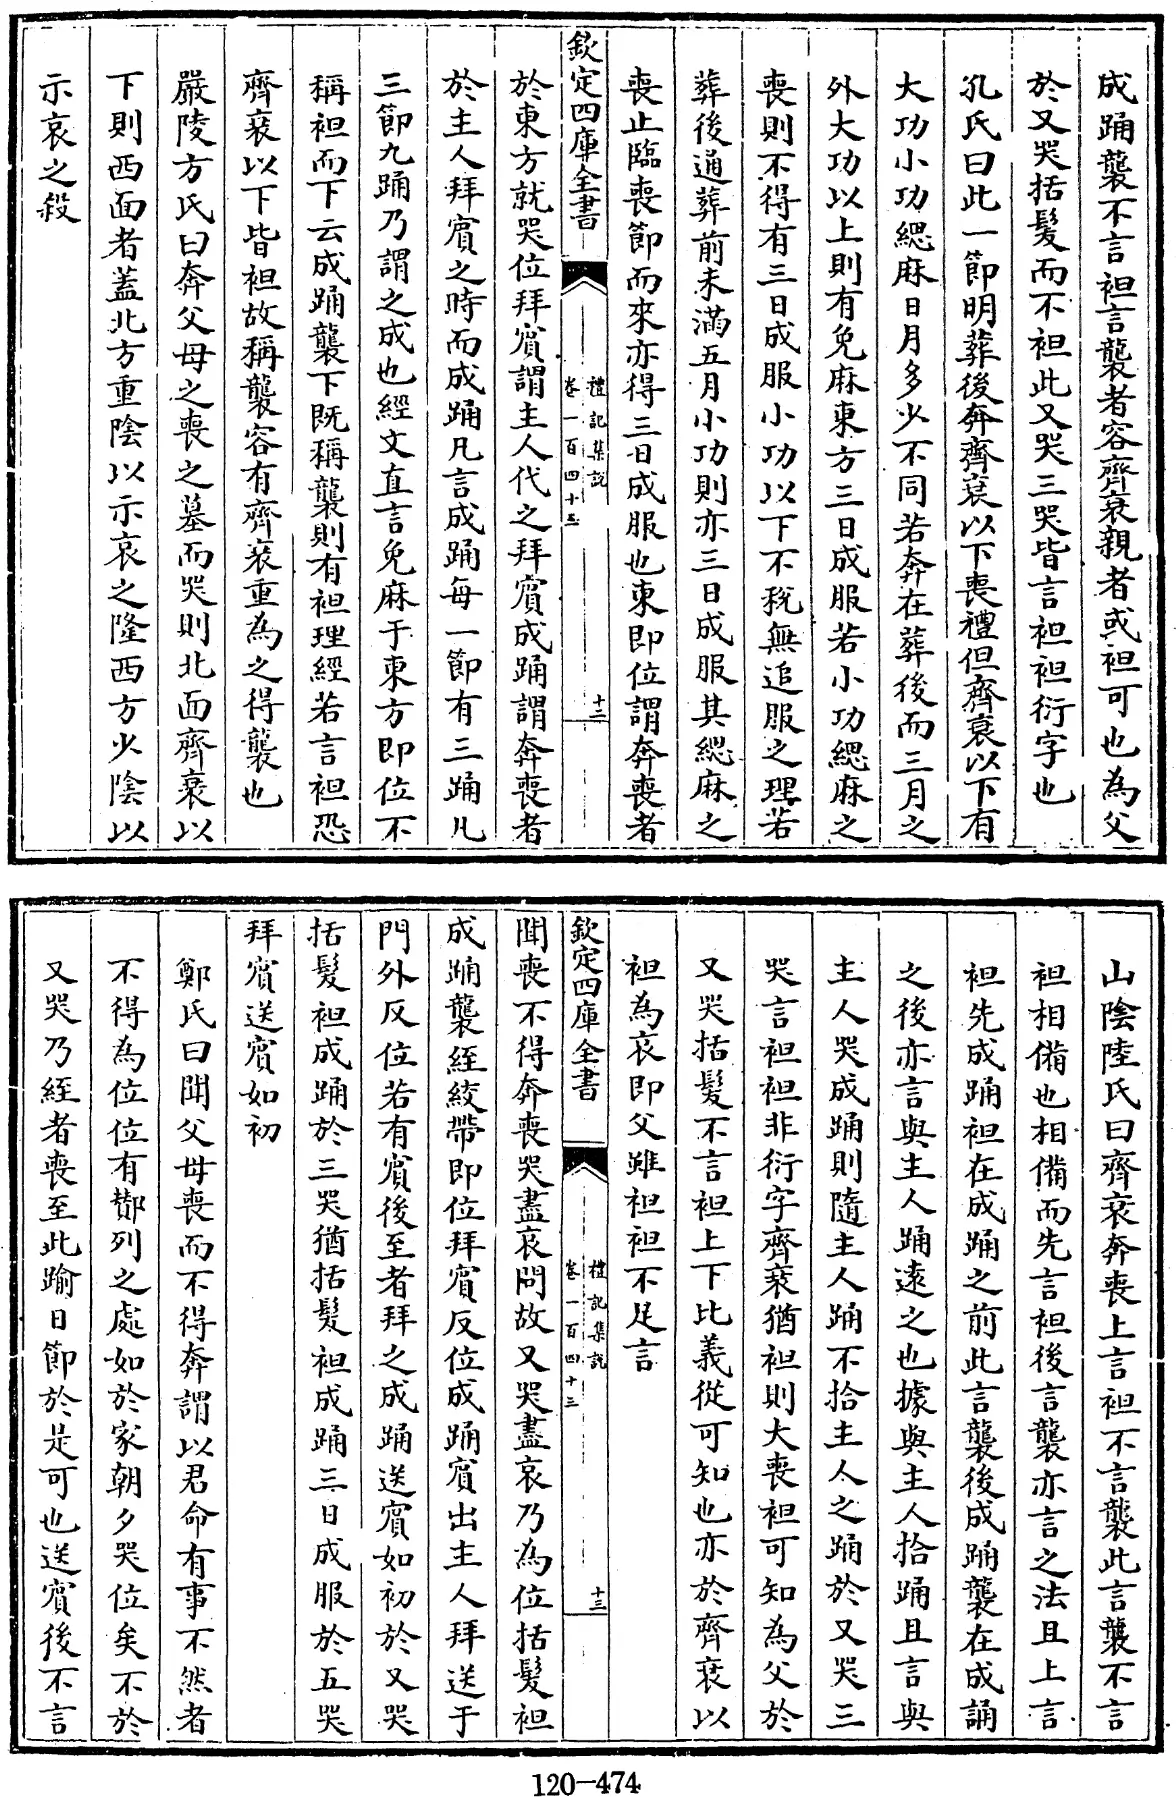 成踊襲不言袒言襲者容齊衰親者或袒可也為父
於又哭括髮而不袒此又哭三哭皆言袒袒衍字也
孔氏曰此一節明葬後奔齊衰以下喪禮但齊衰以下有
大功小功緦麻日月多少不同若奔在葬後而三月之
外大功以上則有免麻東方三日成服若小功緦麻之
喪則不得有三日成服小功以下不稅無追服之理若
葬後通葬前未滿五月小功則亦三日成服其緦麻之
喪止臨喪節而來亦得三日成服也東即位謂奔喪者
欽定四庫全書
禮記集說
卷一百四十三
十二
於東方就哭位拜賓謂主人代之拜賓成踊謂奔喪者
於主人拜賓之時而成踊凡言成踊每一節有三踊凡
三節九踊乃謂之成也經文直言免麻于東方即位不
稱袒而下云成踊襲下既稱襲則有袒理經若言袒恐
齊衰以下皆袒故稱襲容有齊衰重為之得襲也
嚴陵方氏曰奔父母之喪之墓而哭則北面齊衰以
下則西面者蓋北方重陰以示哀之隆西方少陰以
示哀之殺
山陰陸氏曰齊衰奔喪上言袒不言襲此言襲不言
袒相備也相備而先言袒後言襲亦言之法且上言
袒先成踊袒在成踊之前此言襲後成踊襲在成誦
之後亦言與主人踊遠之也據與主人拾踊且言與
主人哭成踊則隨主人踊不拾主人之踊於又哭三
哭言袒袒非衍字齊衰猶袒則大喪袒可知為父於
又哭括髮不言袒上下比義從可知也亦於齊衰以
袒為哀即父雖袒袒不足言
欽定四庫全書
禮記集說
卷一百四十三
十三
聞喪不得奔喪哭盡哀問故又哭盡哀乃為位括髮袒
成踊襲絰絞帶即位拜賓反位成踊賓出主人拜送于
門外反位若有賓後至者拜之成踊送賓如初於又哭
括髮袒成踊於三哭猶括髮袒成踊三日成服於五哭
拜賓送賓如初
鄭氏曰聞父母喪而不得奔謂以君命有事不然者
不得為位位有酇列之處如於家朝夕哭位矣不於
又哭乃絰者喪至此踰日節於是可也送賓後不言
120-474